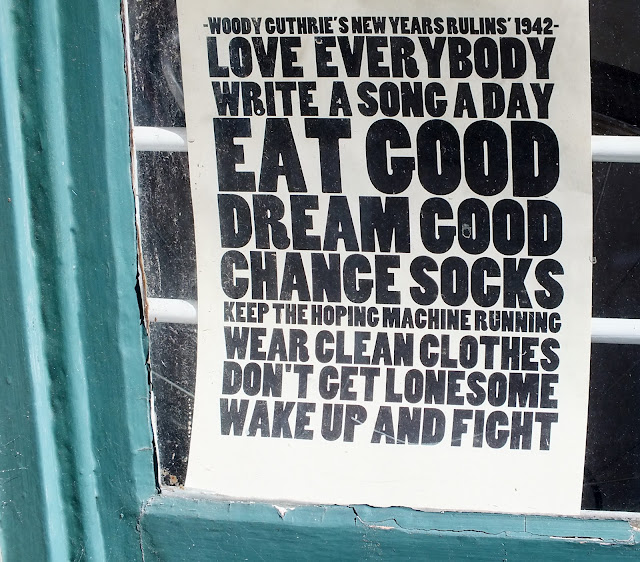 -WOODY GUTHRIE'S NEW YEARS RULINS' 1942-
LOVE EVERYBODY
WRITE A SONG A DAY
EAT GOOD
DREAM GOOD
CHANGE SOCKS
KEEP THE HOPING MACHINE RUNNING
WEAR CLEAN CLOTHES
DON'T GET LONESOME
WAKE UP AND FIGHT